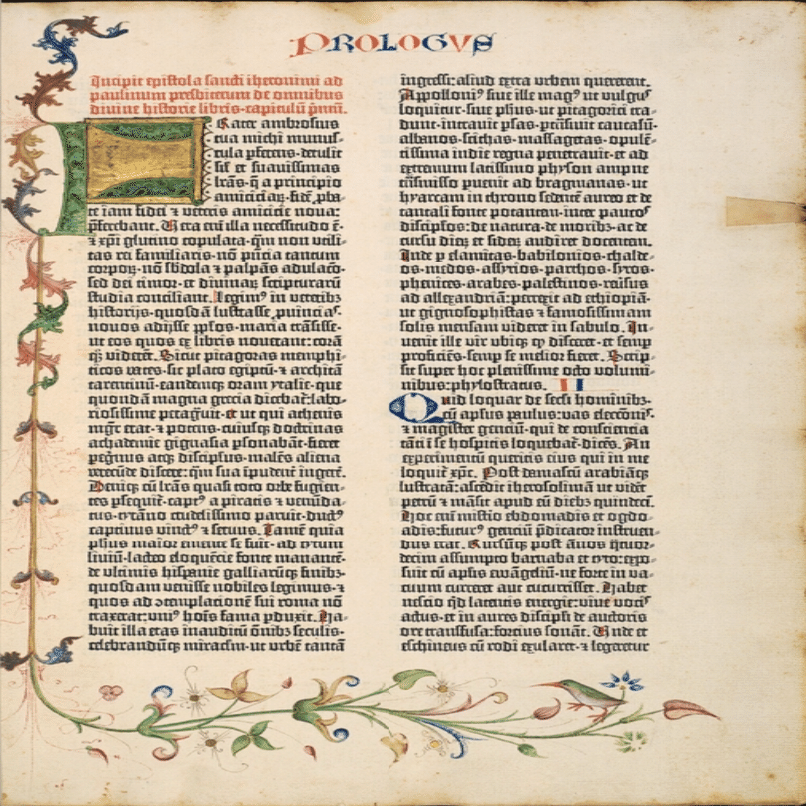 PROLOGVS
Incipit epistola sancti iheronimi ad
paulinum presbiterum de omnibus
divine historie libris·capitulū pmū.
Frater ambrosius
tua michi munus-
cula pferens·detulit
sil' et suavissimas
lrās·q̄ a principio
amiciciaꝝ·fidē pba-
te iam fidei ⁊ veteris amicicie nova:
pferebant. Vera eni illa necessitudo ē·
⁊ xpi glutino copulata·qm̄ non utili-
tas rei familiaris·nō pncia tantum
corpoꝝ·nō sbdola ⁊ palpās adulaco·
sed dei timor·et divinaꝝ scripturarū
studia conciliant. Legim⁹ in veteribꝫ
historijs·quosdā lustrasse puincias·
novos adijsse pplos·maria trāsisse·
ut eos quos ex libris noverant: coram
qꝫ viderēt. Sicut pitagoras memphi-
ticos vates·sic plato egiptū·⁊ architā
tarentinū·eandemqꝫ oram ytalie·que
quondā magna grecia dicebat: labo-
riosissime peragvit·et ut qui athenis
mgr̄ erat·⁊ potens·cuiusqꝫ doctrinas
achademie gignasia psonabāt·fieret
pegrinus atqꝫ discipulus·malēs aliena
verecūde discere: qm̄ sua īpudent ingere.
Deniqꝫ cū lrās quasi toto orbe fugien-
tes psequit·capt⁹ a piratis ⁊ venūda-
tus·tyrāno crudelissimo paruit·duct⁹
captivus vinct⁹ ⁊ servus. Tamē quia
phūs maior emente se fuit·ad tytum
liviū·lacteo eloquēcie fonte manantē·
de ultimis hispanie galliarūqꝫ finibꝫ·
quosdam venisse nobiles legimus·⁊
quos ad ɔtemplacionē sui roma nō
traxerat: uni⁹ hoīs fama pduxit. Ha-
buit illa etas inauditū oībꝫ seculis·
celebrandūqꝫ miraclm·ut urbē tantā
ingressi: aliud extra urbem quererent.
Appolloni⁹ sive ille mag⁹ ut vulgus
loquitur·sive phus·ut pitagorici tra-
dunt·intravit psas·ptrāsivit caucasū·
albanos·scithas·massagetas·opulē-
tissima indie regna penetravit·et ad
extremum latissimo physon amne
trāsmisso puenit ad bragmanas·ut
hyarcam in throno sedentē aureo et de
tantali fonte potantem·inter paucos
discipulos·de natura·de moribꝫ·ac de
cursu dieꝝ et sideꝝ audiret docentem.
Inde p elamitas·babilonios·chalde-
os·medos·assyrios·parthos·syros·
phenices·arabes·palestinos·reusus
ad allexandriā: perrexit ad ethiopiā·
ut gignosophistas ⁊ famosissimam
solis mensam videret in sabulo. In-
venit ille vir ubiqꝫ qd disceret·et semp
proficiēs·semp se melior fieret. Scrip-
sit super hoc plenissime octo volumi-
nibus: phylostratus. II
Quid loquar de secli hominibꝫ·
cū apsus paulus: vas eleccōis·
⁊ magister genciū·qui de consciencia
tāti ī se hospitis loquebat·dicēs. An
experimentū queritis eius qui in me
loquit xps. Post damascū arabiāqꝫ
lustratā: ascēdit iherosolimā ut videt
petrū ⁊ māsit apud eū diebꝫ quindeci.
Hoc eni misterio ebdomadis et ogdo-
adis: futur⁹ genciū pdicator instruen-
dus erat. Rursūqꝫ post ānos qtuor-
decim assumpto barnaba et tyto: expo-
suit cū apsis ewāgeliū·ne forte in va-
cuum curreret aut cucurrisset. Habet
nescio qd latentis energie: vive vocis
actus·et in aures discipli de auctoris
ore transfusa: forcius sonat. Unde et
eschineus cū rodi exularet·⁊ legeretur